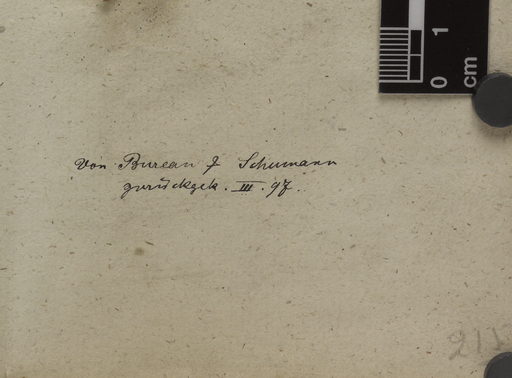 Von Bureau & Schumann
zurückgek. III. 97.
211
0 1
cm